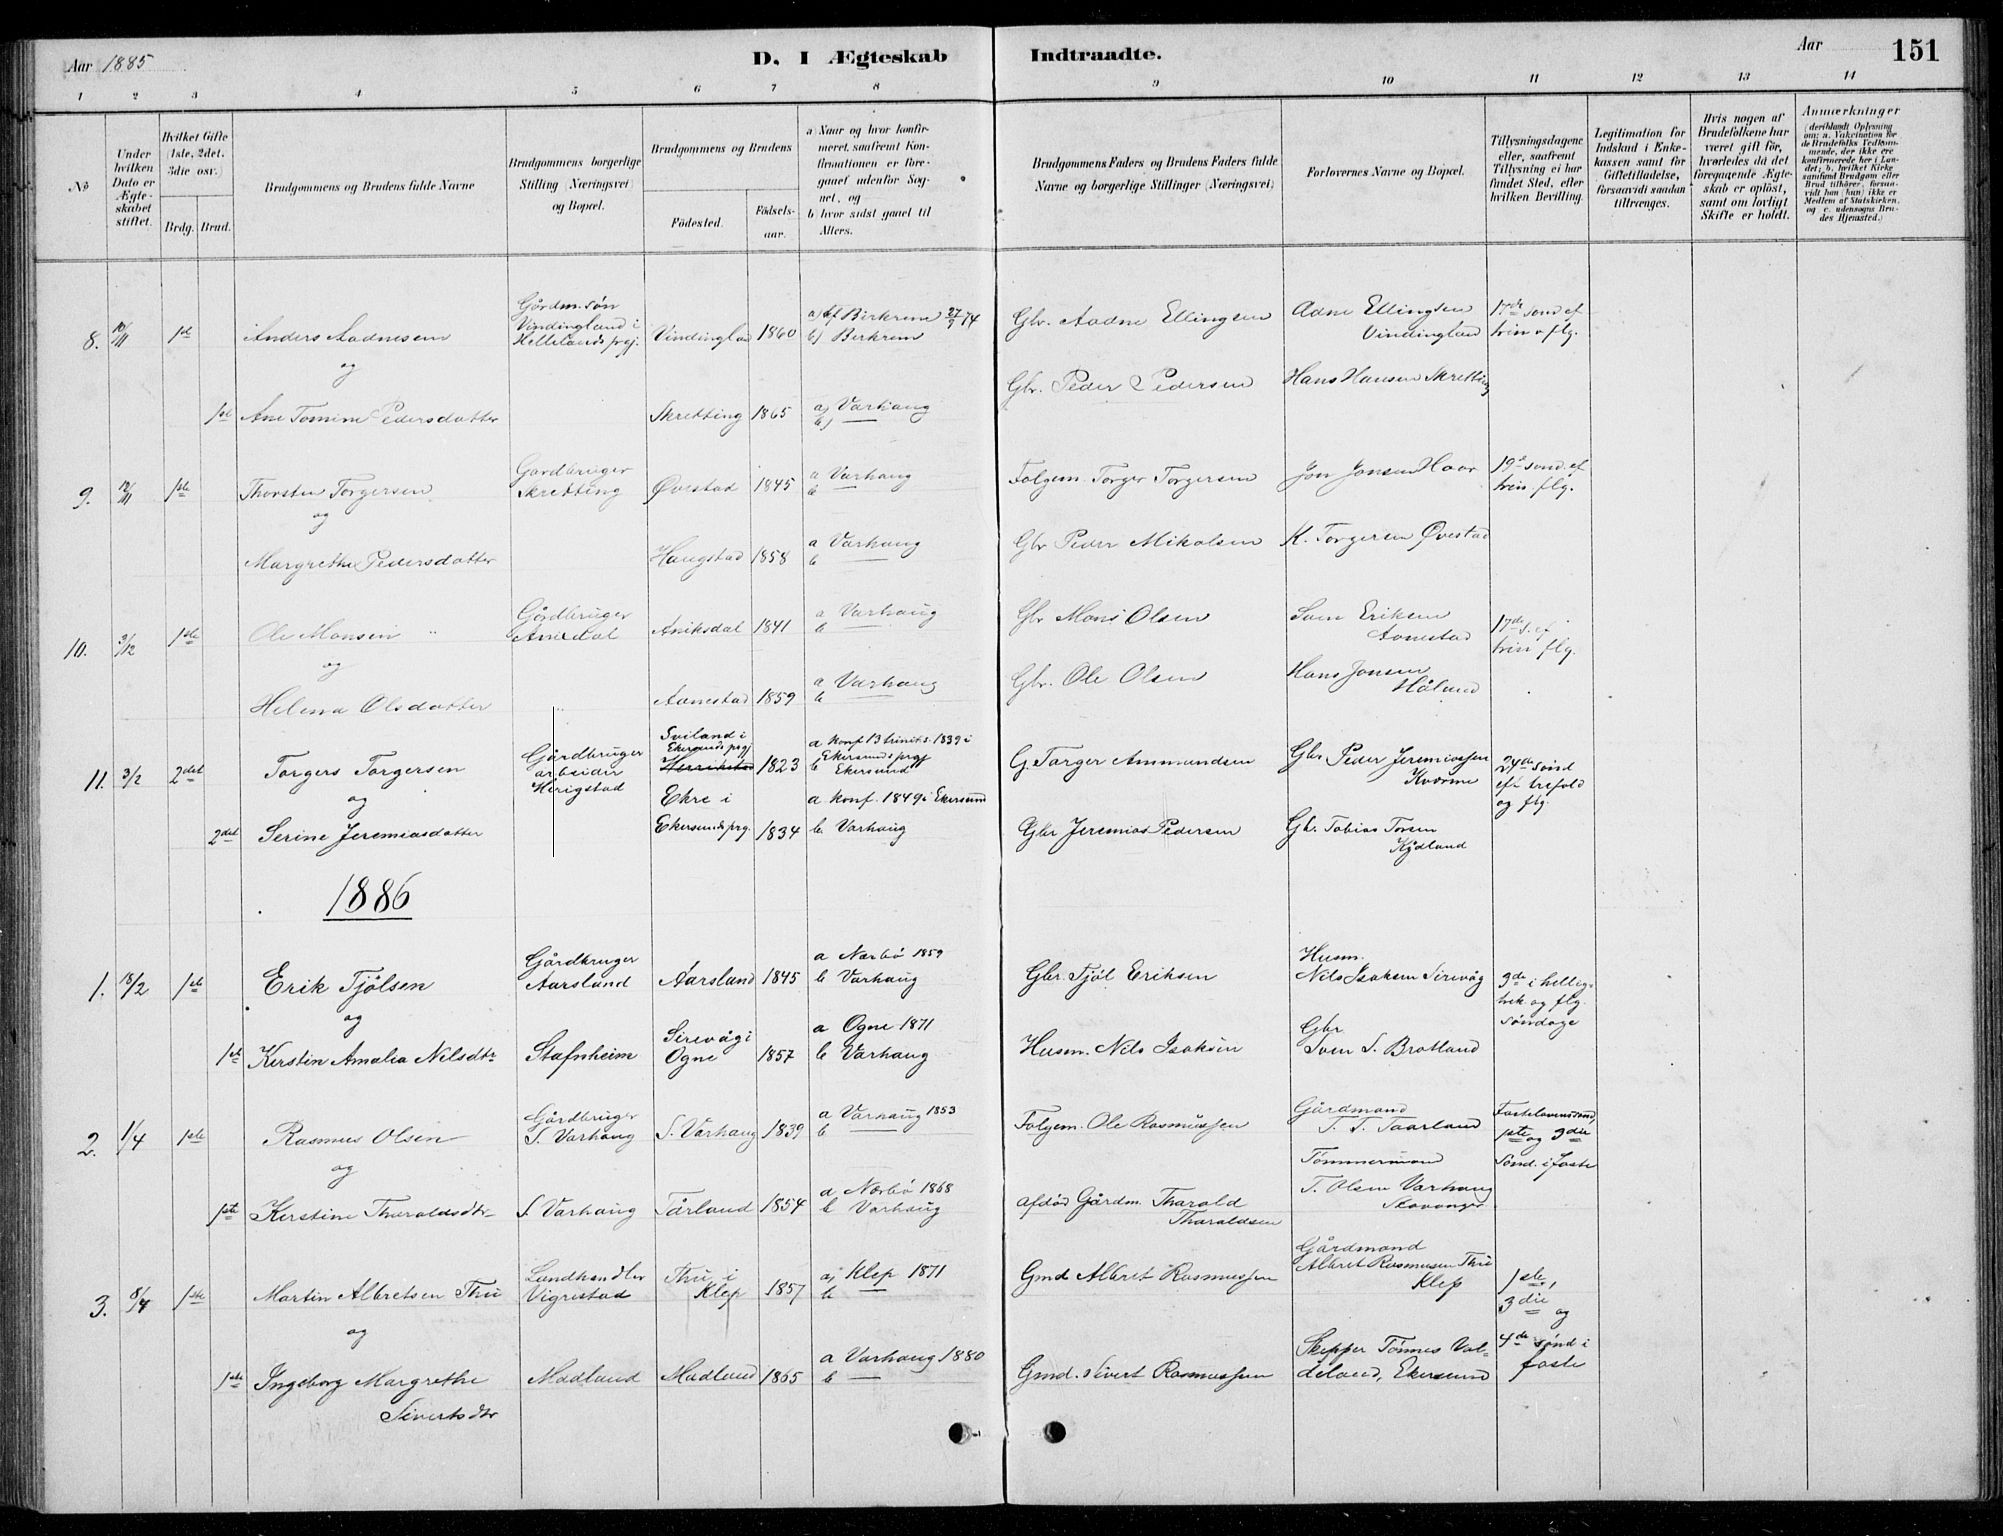 Aar 1885
D. I Ægteskab Indtraadte.
Aar
151
1 2 3 4 5 6 7 8 9 10 11 12 13 14
No
Under hvilken Dato er Ægteskabet stiftet.
Hvilket Gifte (1ste, 2det, 3die osv.)
Brdg. Brud.
Brudgommens og Brudens fulde Navne
Brudgommens borgerlige Stilling (Næringsvei) og Bopæl.
Brudgommens og Brudens
Födested.
Födsels-aar.
a Naar og hvor konfirmeret, saafremt Konfirmationen er foregaaet udenfor Sognet, og
b hvor sidst gaaet til Alters.
Brudgommens Faders og Brudens Faders fulde Navne og borgerlige Stillinger (Næringsvei)
Forlovernes Navne og Bopæl.
Tillysningsdagene eller, saafremt Tillysning ei har fundet Sted, efter hvilken Bevilling.
Legitimation for Indskud i Enkekassen samt for Giftetilladelse, forsaavidt saadan tiltrænges.
Hvis nogen af Brudefolkene har været gift før, hvorledes da det foregaaende Ægteskab er oplöst, samt om lovligt Skifte er holdt.
Anmærkninger
(deriblandt Oplysning om: a. Vakcination for de Brudefolks Vedkommende, der ikke ere konfirmerede her i Landet; b. hvilket Kirkesamfund Brudgom eller Brud tilhörer, forsaavidt han (hun) ikke er Medlem af Statskirken, og c. udensogns Brudes Hjemsted.)
8. 10/11 1ste Anders Aadnesen
Gårdm. søn Vindingland i Hellelands prgj.
Vindingland 1860
a) af Birkrem 27/9 74
b) Birkrem
Gbr. Aadne Ellingsen
Adne Ellingsen Vindingland
17de sønd ef trin o. flg.
og
1ste Ane Tomine Pedersdatter
Skretting 1865
a) Varhaug
b) —
Gbr. Peder Pedersen
Hans Hansen Skretting
9. 12/11 1ste Thorsten Torgersen
Gardbruger Skretting
Øvestad 1845
a Varhaug
b —
Folgem. Torger Torgersen
Jon Jonsen Haar
19de sond. ef trin. flg.
og
Margrethe Pedersdatter
Haugstad 1858
a Varhaug
b —
Gbr Peder Mikalsen
K. Torgersen Øvestad
10. 3/12 1ste Ole Monsen
Gårdbruger Anisdal
Aniksdal 1841
a Varhaug
b —
Gbr Mons Olsen
Sven Eriksen Aanestad
17de s. ef trin flg.
og
Helena Olsdatter
Aanestad 1859
a Varhaug
b —
Gbr. Ole Olsen
Hans Jonsen Håland
11. 3/2 2det Torgers Torgersen
Gårdbruger arbeider Herigstad
Sviland i Ekersunds prgj Herrikstad 1823
a konf 13 trinits. 1839 i Ekersunds prgj
b Ekersund
G. Torger Ammundsen
Gbr Peder Jeremiassen Kværme
24de sønd eft trefold og flg.
og
2det Serine Jeremiasdatter
Ekre i Ekersunds prg. 1834
a konf. 1849 i Ekersund
b. Varhaug
Gbr Jeremias Pedersen
Gb. Tobias Torsen Kydland
1886
1. 18/2 1ste Erik Tjølsen
Gårdbruger Aarsland
Aarsland 1845
a Nærbø 1859
b Varhaug
Gbr. Tjøl Eriksen
Husm. Nils Isaksen Sirevåg
3de i hellig- trek og flg. søndage
og
1ste Kerstin Amalia Nilsdtr
Stafnheim
Sirevåg i Ogne 1857
a Ogne 1871
b Varhaug
Husm. Nils Isaksen
Gbr Sven S. Bratland
2. 1/4 1ste Rasmus Olsen
Gårdbruger S. Varhaug
S. Varhaug 1839
a Varhaug 1853
b —
Folgem. Ole Rasmussen
Gårdmand T. T. Taarland
Fastelavenssønd, 1ste og 3die Sønd. i faste
og
1ste Kerstine Tharaldsdtr
S. Varhaug
Tårland 1854
a Nærbø 1868
b Varhaug
afdød Gårdm. Tharald Tharaldsen
Tømmermand T. Olsen Varhaug Stavanger
3. 8/4 1ste Martin Albretsen Thu
Landhandler Vigrestad
Thu i Klep 1857
a) Klep 1871
b —
Gmd Albret Rasmussen
Gårdmand Albret Rasmusen Thu Klep
1ste, 3die og 4de sønd i faste
og
1ste Ingeborg Margrethe Sivertsdtr
Madland
Madland 1865
a Varhaug 1880
b —
Gmd. Sivert Rasmussen
Skepper Tønnes Valdeland, Ekersund